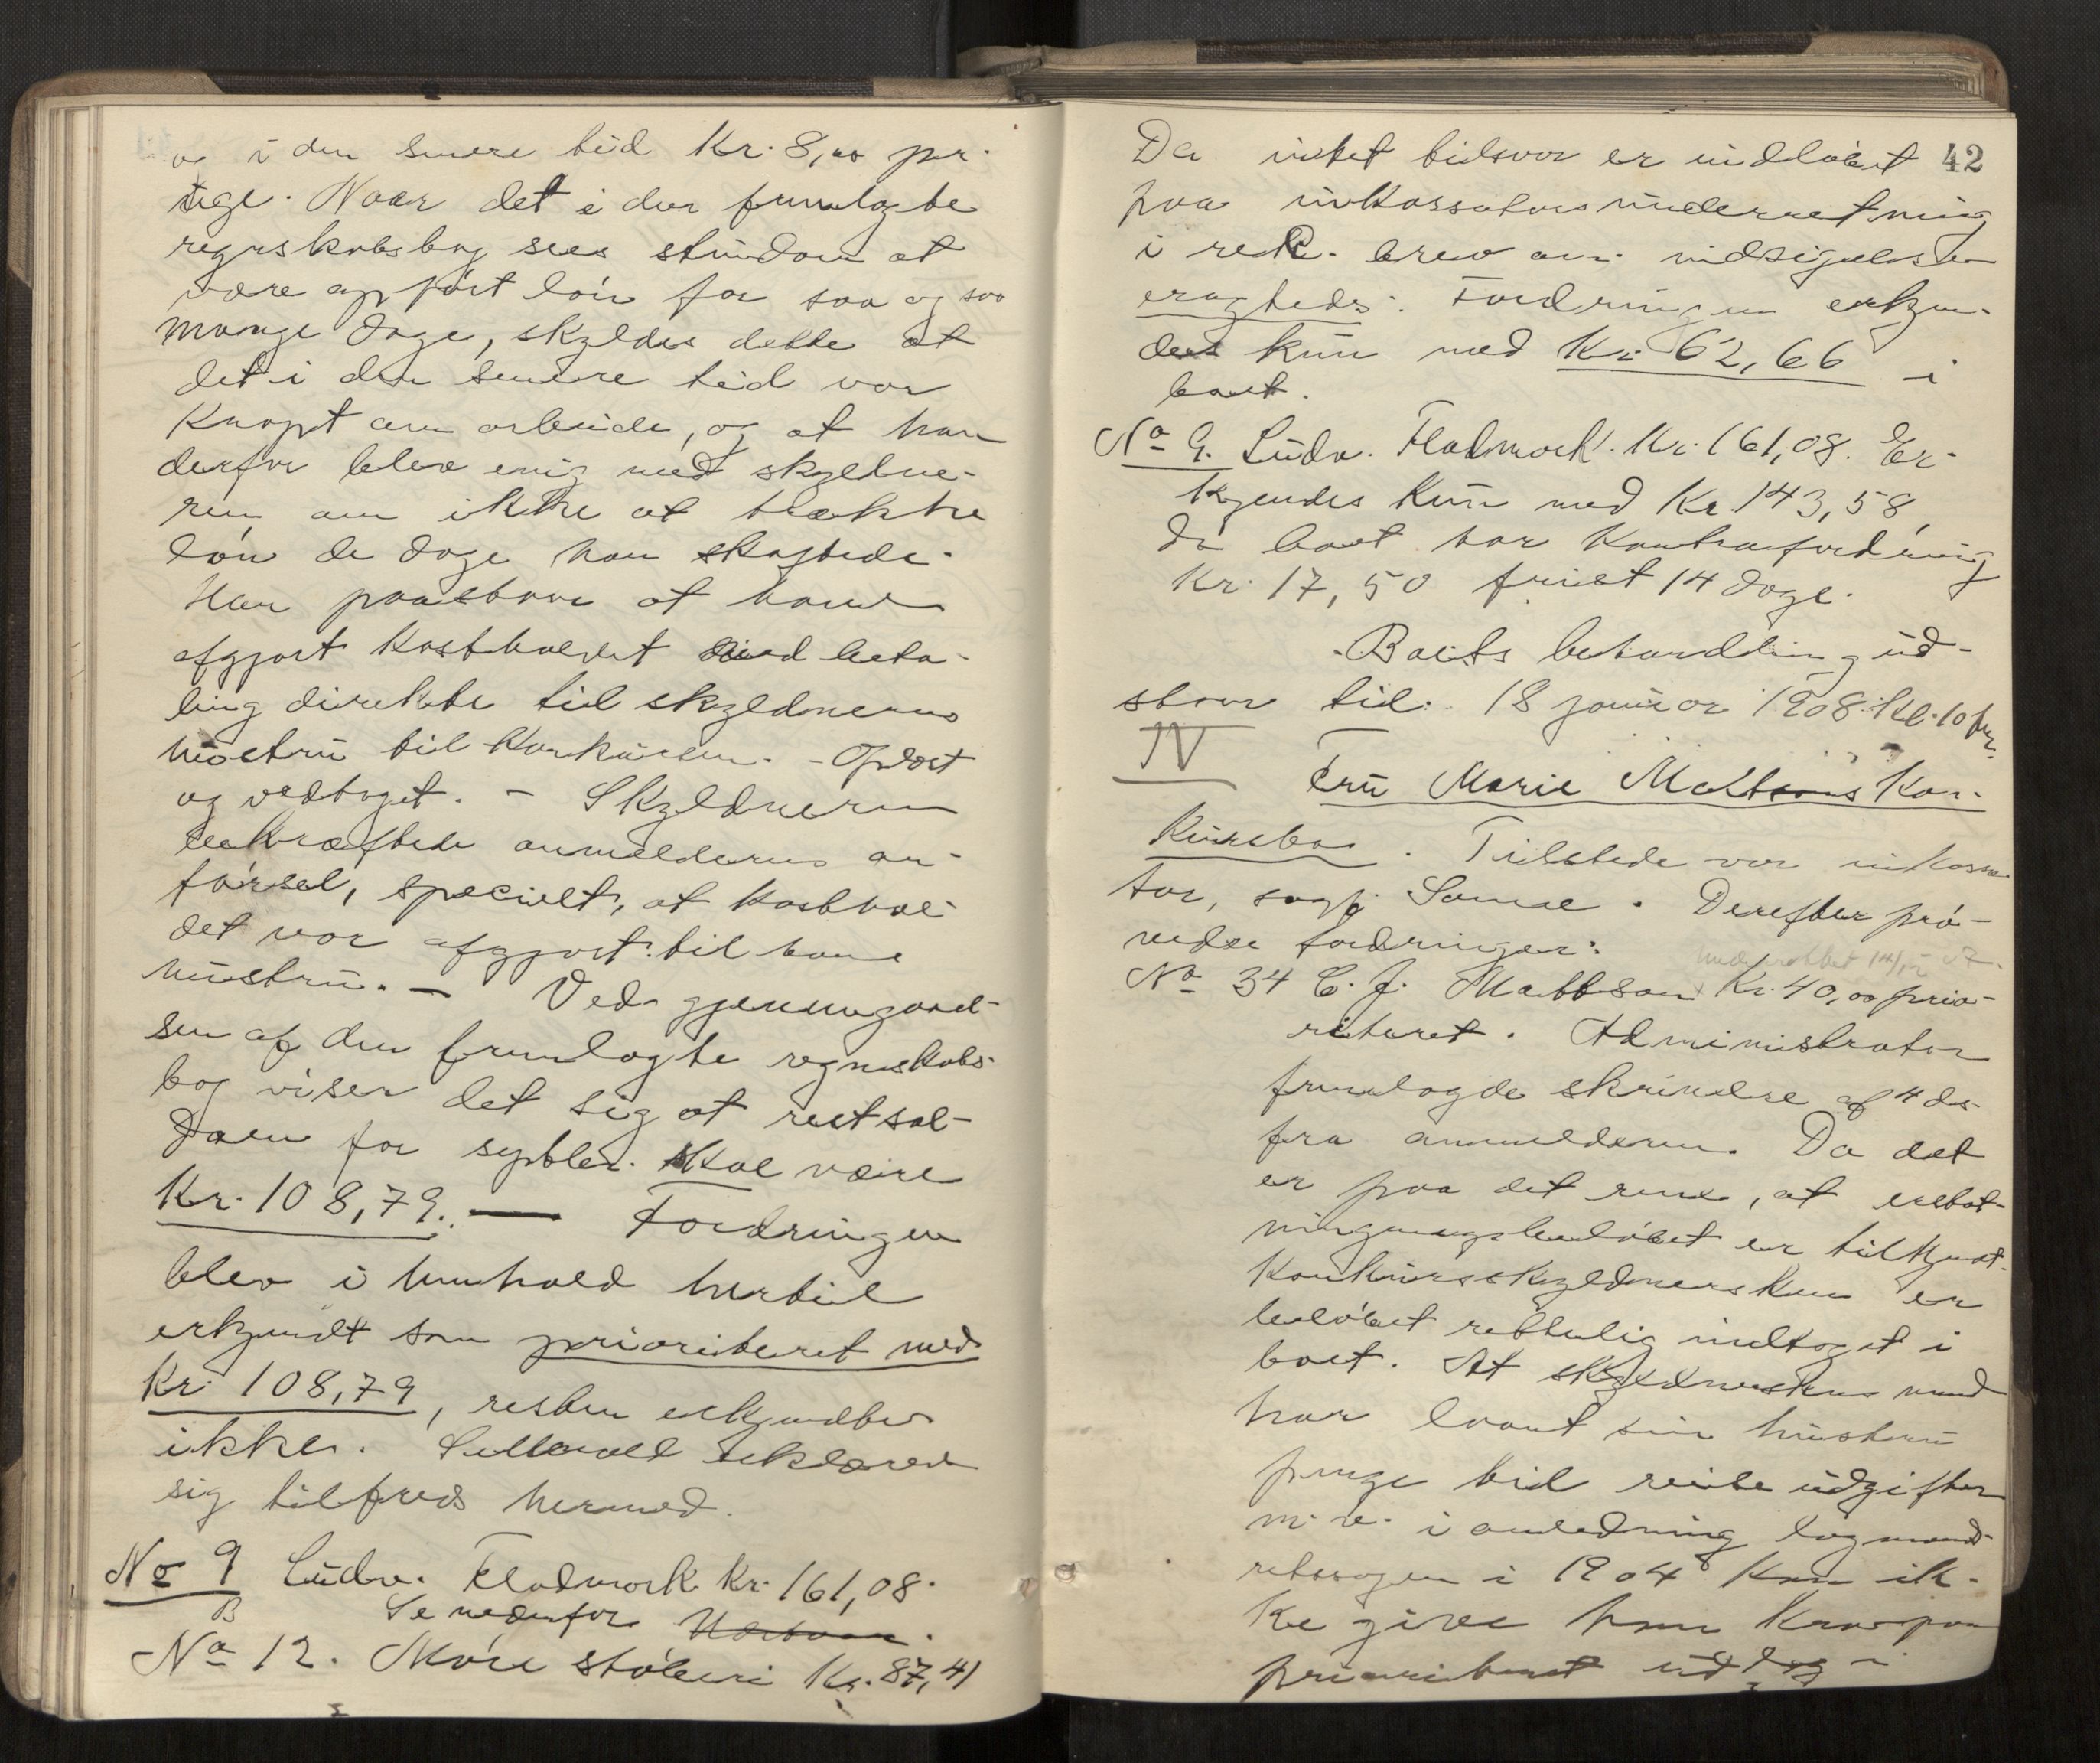 og i den senere tid Kr. 8,00 pr.
uge. Naar det i den fremlagte
regnskabsbog sees stundom at
være opført løn for saa og saa
mange dage, skyldes dette at
det i den senere tid var
knapt om arbeide, og at han
derfor blev enig med skyldne-
ren om ikke at trække
løn de dage han skaftede.
Han paastaar at have
afgjort kostholdet med beta-
ling direkte til skyldnerens
hustru til konkursen. - Oplæst
og vedtaget. - Skyldneren
bekræftede anmelderens an-
førsel, specielt, at kosthol-
det var afgjort til hans
hustru. - Ved gjennemgaael-
sen af den fremlagte regnskabs-
bog viser det sig at restsal-
doen for skal være
Kr. 108,79. — Fordringen
blev i henhold hertil
erkjendt som prioriteret med
Kr. 108,79, resten erkjendtes
ikke. erklæred
sig tilfreds hermed.
No 9 Ludv. Flademark Kr. 161,08.
B Se nedenfor
No 12. Møre støberi Kr. 87,41
42
Da intet tilsvar er indløbet
paa inkassators underretning
i rek. brev om indsigelsen
Fordringen erkjen-
des kun med Kr. 62,66 i
boet.
No 9. Ludv. Flademark. Kr. 161,08. Er-
kjendes kun med Kr. 143,58,
da boet har kontrafordring
Kr. 17,50 frist 14 dage.
Boets behandling ud-
staar til 18 januar 1908 kl. 10 fm.
IV
Fru Marie Mattsons kon-
kursbo. Tilstede var inkassa-
tor, sagf. Derefter prø-
vedes fordringer:
underrettet 14/12 07.
No 34 C. J. Mattson Kr. 40,00 prio-
riteret. Administrator
fremlagde skrivelse af 4 ds
fra anmelderen. Da det
er paa det rene, at erstat-
ningen beløbet er tilkjendt
konkursskyldnersken er
beløbet rettelig indtaget i
boet. At skyldnerskens mand
har laant sin hustru
penge til reiseudgifter
m. v. i anledning lagmands-
retssagen i 1904 kan ik-
ke give ham krav paa
prioriteret udlæg i